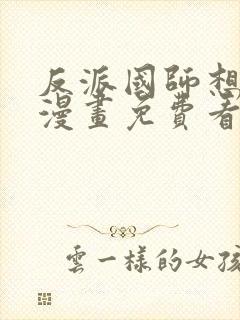 反派國師想
漫畫免費看
雲一樣的女孩